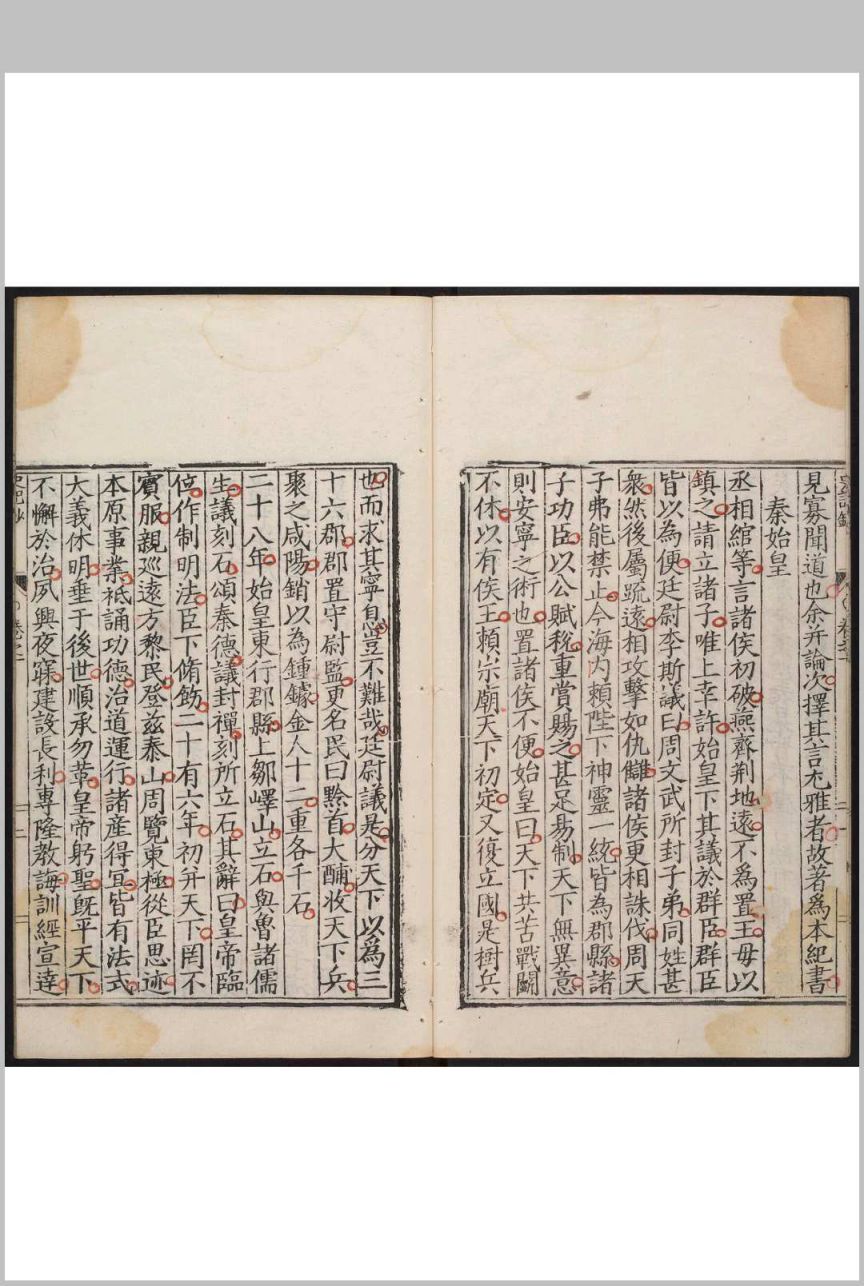 見寡聞道也余并論次擇其言尤雅者故著爲本紀書
秦始皇
丞相綰等言諸侯初破燕齊荆地遠不爲置王毋以
鎮之請立諸子唯上幸許始皇下其議於群臣群臣
皆以為便廷尉李斯議曰周文武所封子弟同姓甚
衆然後屬疏遠相攻擊如仇讎諸侯更相誅伐周天
子弗能禁止今海内賴陛下神靈一統皆為郡縣諸
子功臣以公賦稅重賞賜之甚足易制天下無異意
則安寧之術也置諸侯不便始皇曰天下共苦戰鬭
不休以有侯王賴宗廟天下初定又復立國是樹兵
也而求其寧息豈不難哉廷尉議是分天下以爲三
十六郡郡置守尉監更名民曰黔首大酺收天下兵
聚之咸陽銷以為鍾鐻金人十二重各千石
二十八年始皇東行郡縣上鄒嶧山立石與魯諸儒
生議刻石頌秦德議封禪刻所立石其辭曰皇帝臨
位作制明法臣下脩飭二十有六年初并天下罔不
賓服親巡遠方黎民登兹泰山周覽東極從臣思迹
本原事業祗誦功德治道運行諸產得宜皆有法式
大義休明垂于後世順承勿革皇帝躬聖旣平天下
不懈於治夙興夜寐建設長利專隆教誨訓經宣達
卷之一